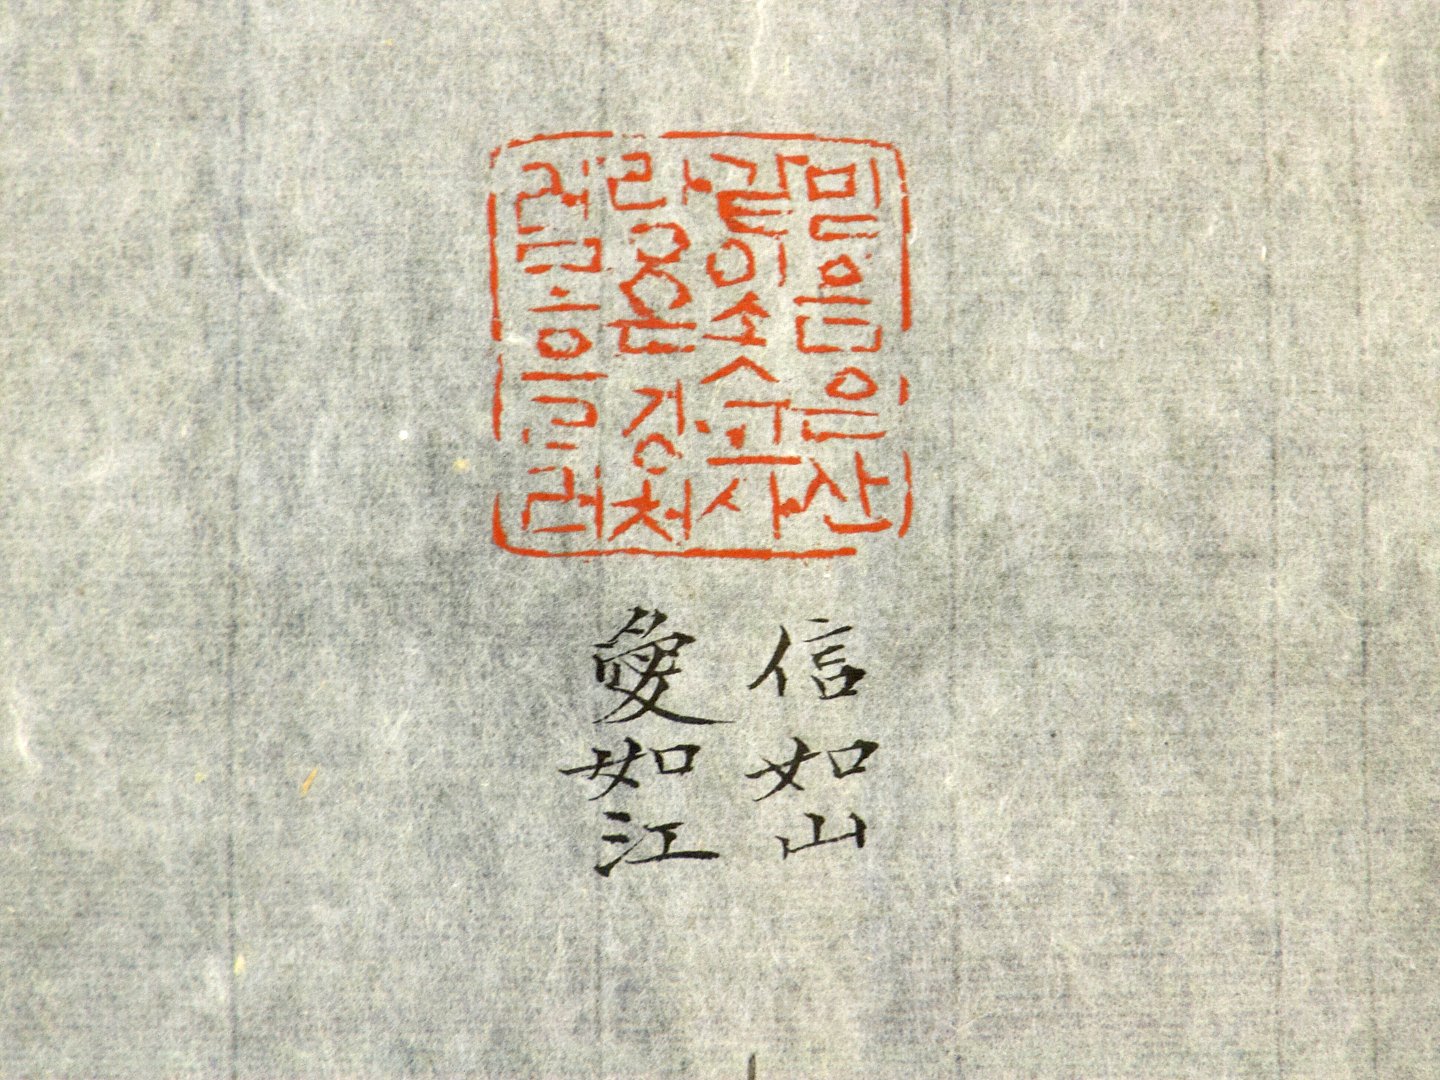 믿음은산
같이솟고사
랑은강처
럼흘러
信如山
愛如江